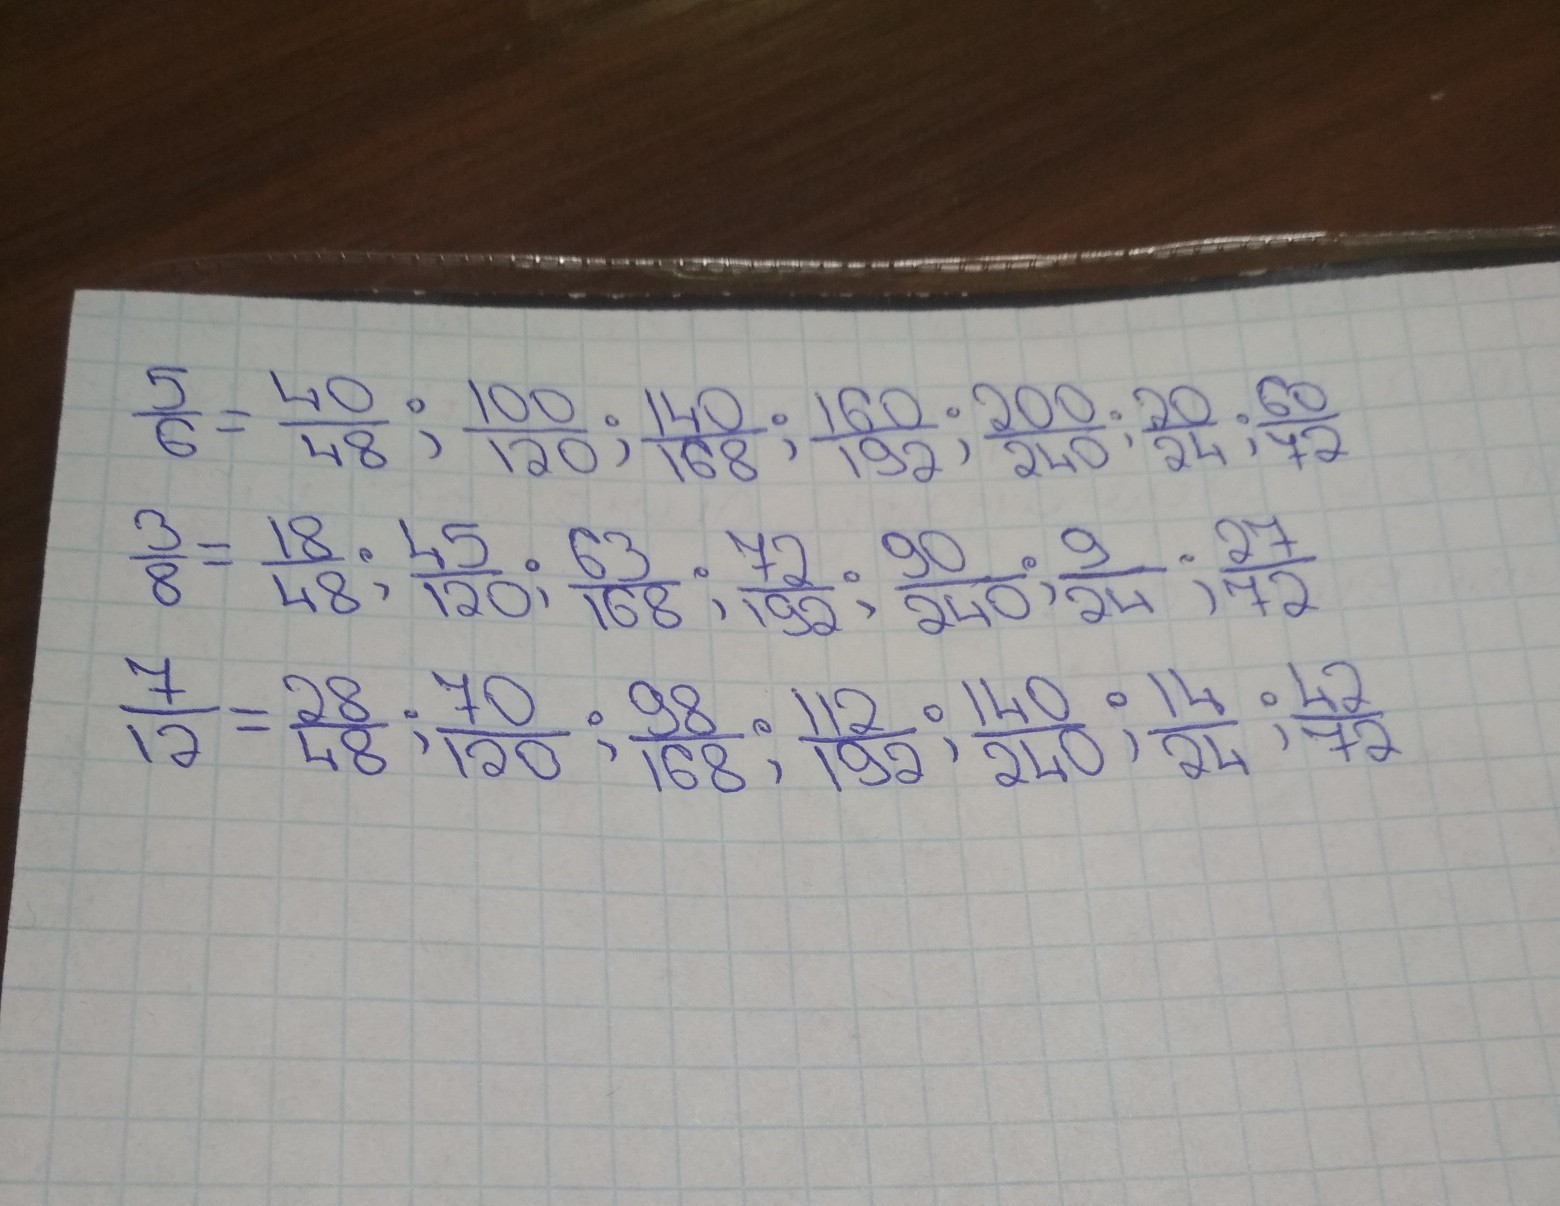 5/6 = 40/48; 100/120; 140/168; 160/192; 200/240; 20/24; 60/72
3/8 = 18/48; 45/120; 63/168; 72/192; 90/240; 9/24; 27/72
7/12 = 28/48; 70/120; 98/168; 112/192; 140/240; 14/24; 42/72